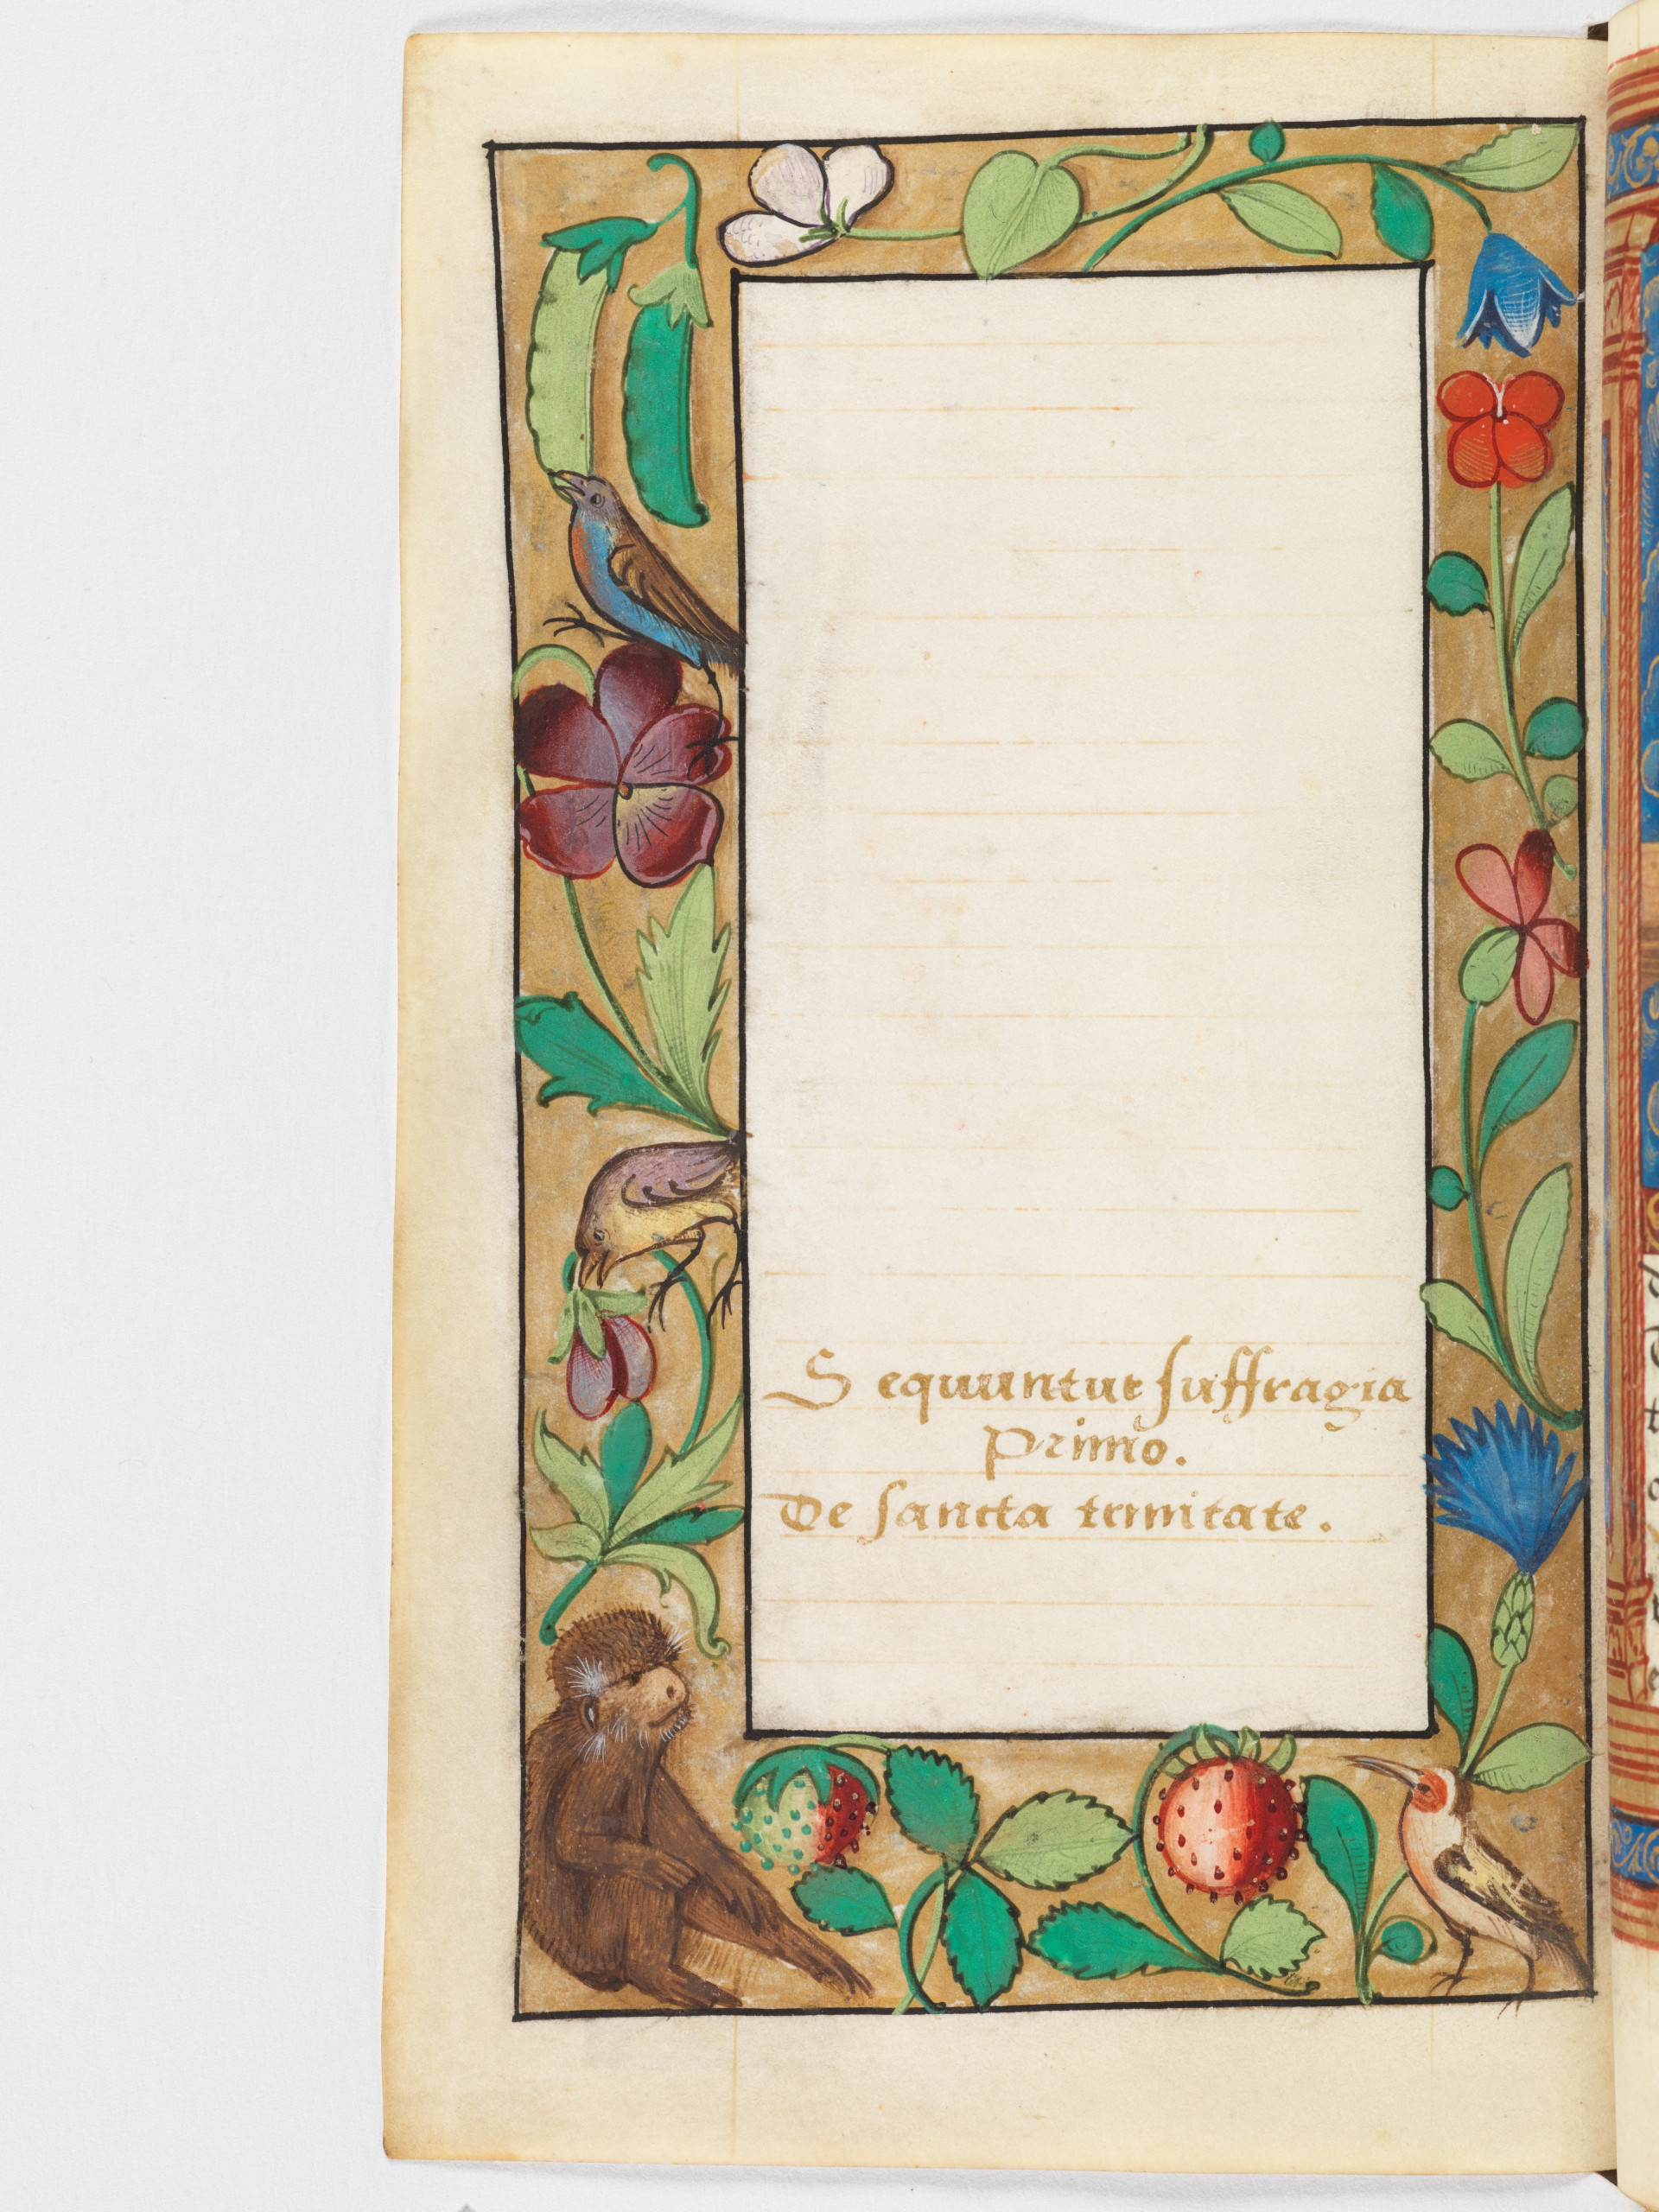 Sequuntur suffragia
Primo.
De sancta trinitate.